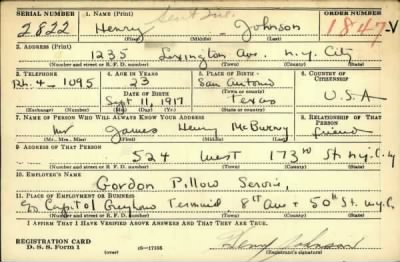 SERIAL NUMBER 1. NAME (Print) ORDER NUMBER
2822 Henry Johnson 1847-V
(First) (Middle) (Last)
2. ADDRESS (Print)
1235 Lexington Ave. N.Y. City
(Number and street or R. F. D. number) (Town) (County) (State)
3. TELEPHONE 4. AGE IN YEARS 5. PLACE OF BIRTH 6. COUNTRY OF CITIZENSHIP
Rh. 4-1095 23 San Antonio
DATE OF BIRTH (Town or county)
Sept 11, 1917 Texas U.S.A
(Exchange) (Number) (Mo.) (Day) (Yr.) (State or country)
7. NAME OF PERSON WHO WILL ALWAYS KNOW YOUR ADDRESS 8. RELATIONSHIP OF THAT PERSON
Mr James Henry McBurny friend
(Mr., Mrs., Miss) (First) (Middle) (Last)
9. ADDRESS OF THAT PERSON
524 West 173rd St. N.Y.C. N.Y
(Number and street or R. F. D. number) (Town) (County) (State)
10. EMPLOYER'S NAME
Gordon Pillow Service,
11. PLACE OF EMPLOYMENT OR BUSINESS
c/o Capitol Greyhound Terminal, 8th Ave + 50th St. N.Y.C.
(Number and street or R. F. D. number) (Town) (County) (State)
I AFFIRM THAT I HAVE VERIFIED ABOVE ANSWERS AND THAT THEY ARE TRUE.
REGISTRATION CARD
D. S. S. Form 1 16—17105 Henry Johnson
(Registrant's signature)